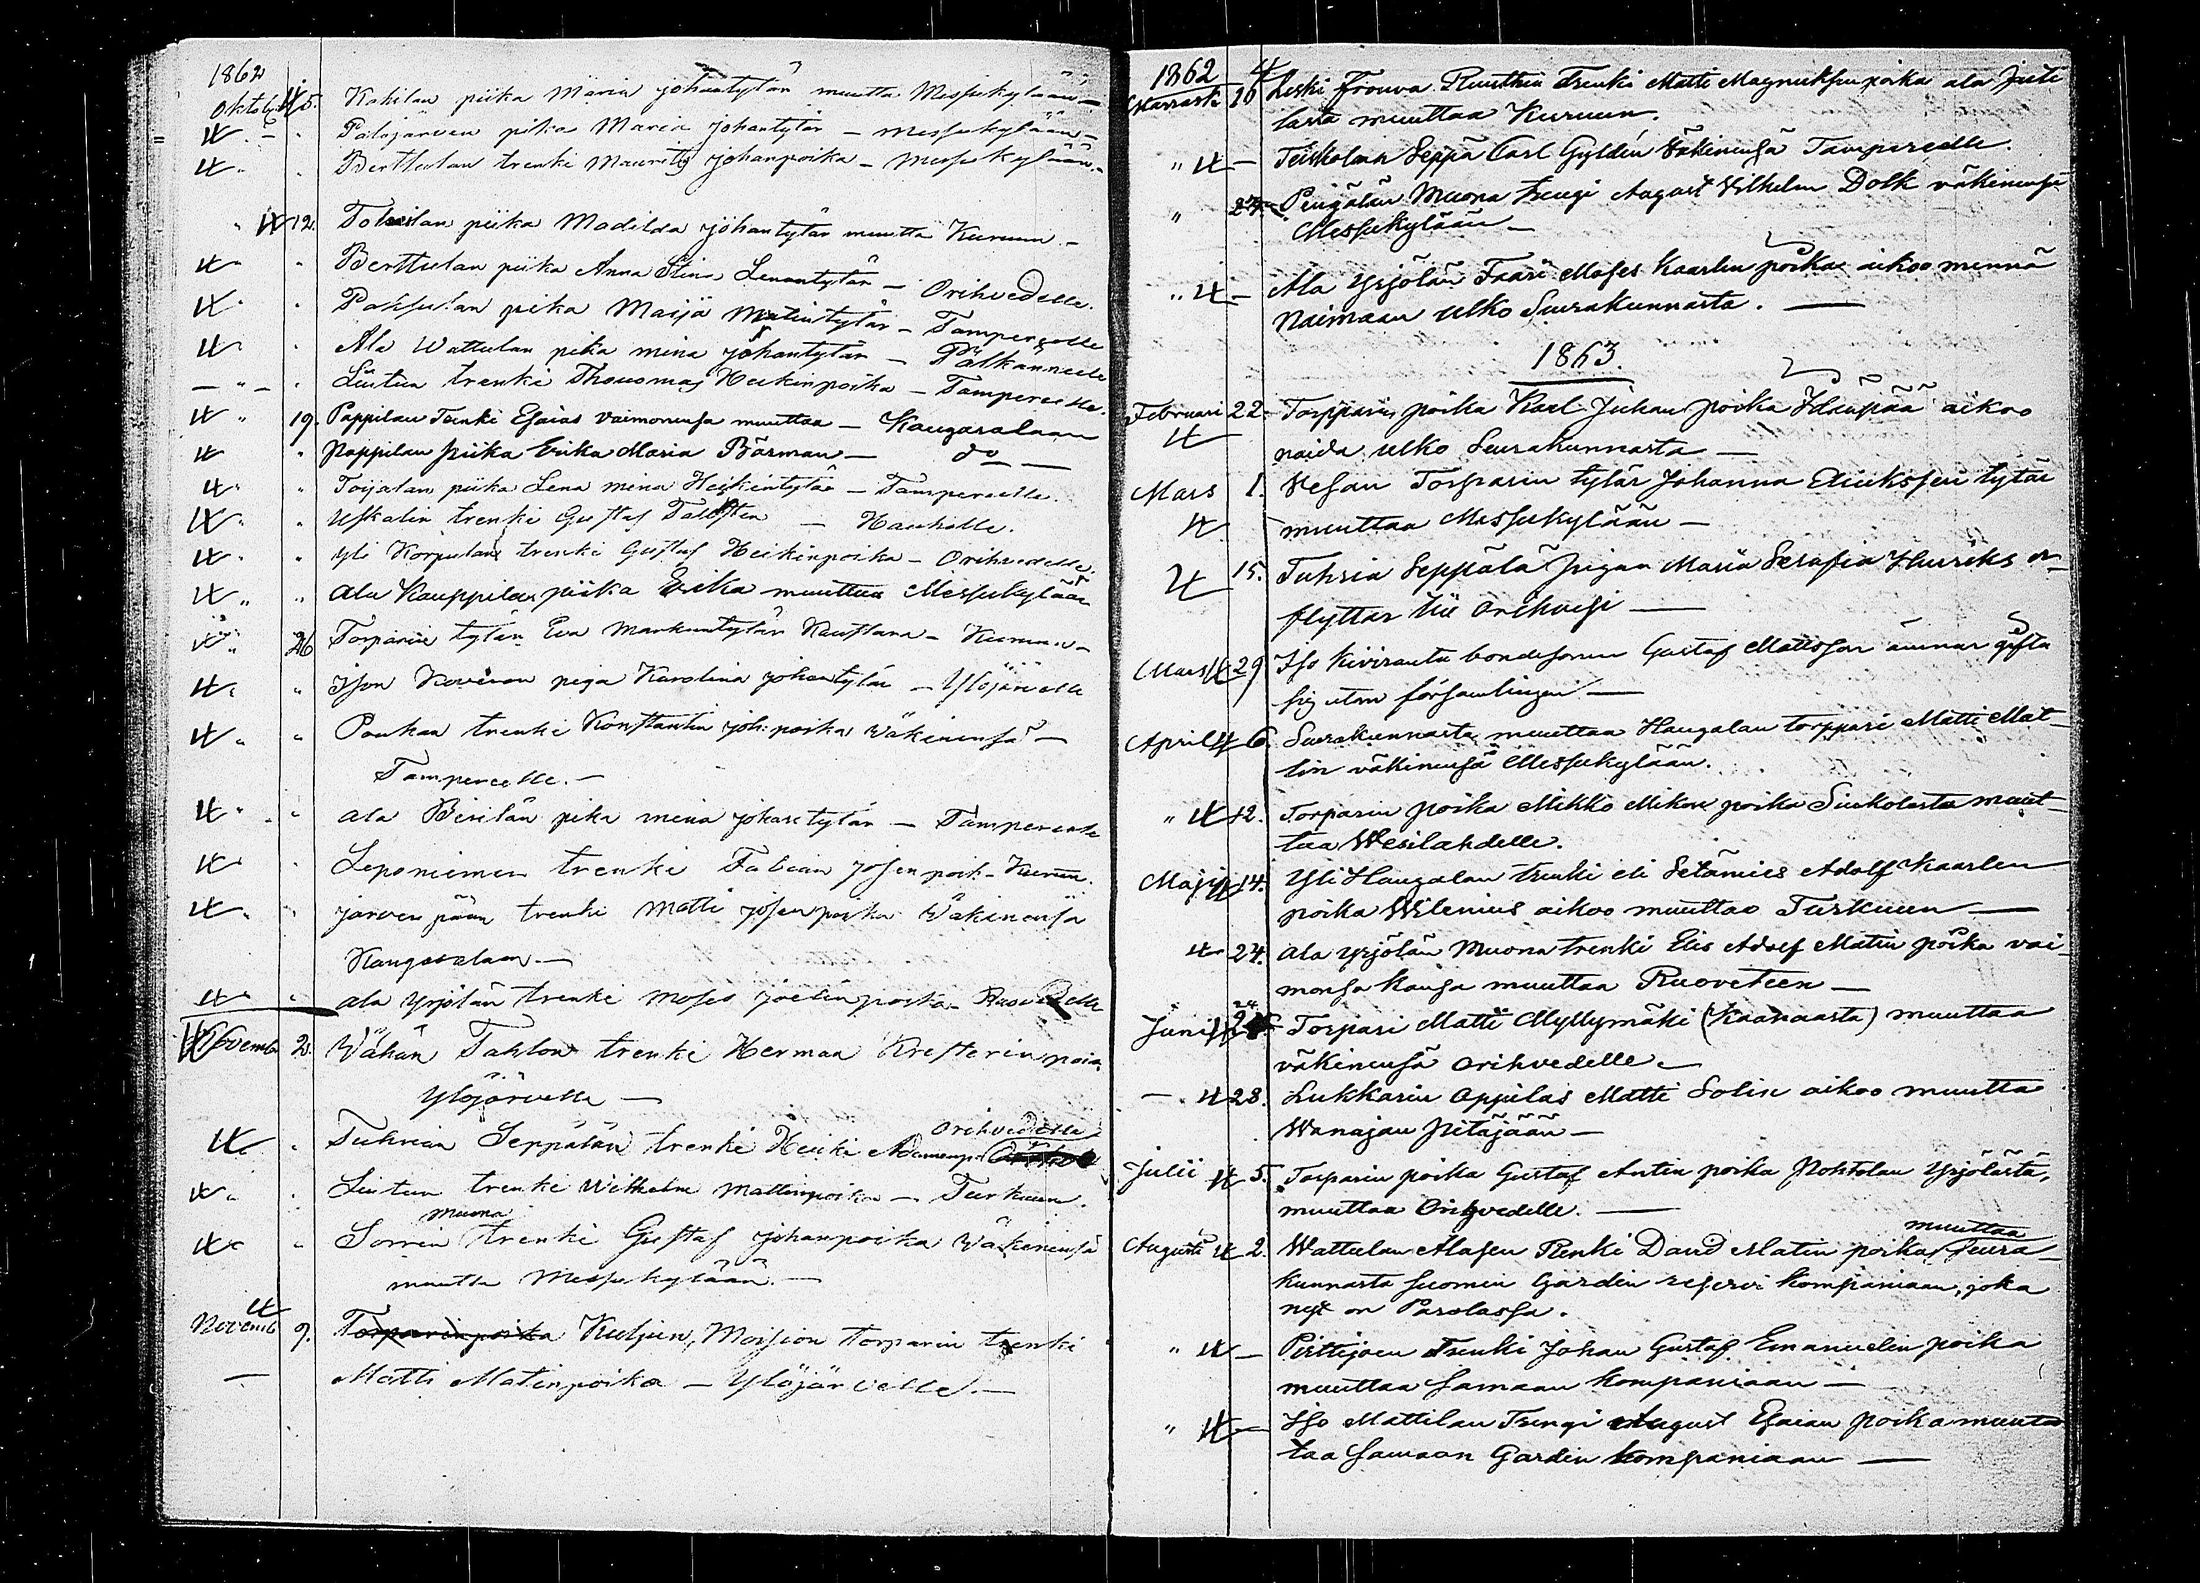 1862
Oktob 5. Kakilan piika Maria johantytär muutta Messukylään —
" Palojärven piika Maria johantytär — Messukylään —
" Berttulan trenki Maurits johanpoika — Messukylään. —
" 12. piika Madilda johantytär muutta Kuruun —
" " Berttulan piika Anna Stina — Orihvedelle.
" " Pakkulan piika Maija Matintytär — Tampereelle
" " Ala Wattulan piika mina johantytär — Pälkäneelle
— " — " Liutun trenki Thouomas Heikinpoika — Tampereelle.
" 19. Pappilan Trenki Esaias vaimonensa muuttaa — Kangasalaan
" Pappilan Piika Erika Maria Börman — do —
" " Toijalan piika Lena mina Heikintytär — Tampereelle.
" " Uskalin trenki Gustaf — Hauholle.
" " yli Korpulan trenki Gustaf Heikinpoika — Orihvedelle.
" " Ala Kauppilan piika Erika muuttaa Messukylään
" 26 Torparin tytär Eva Markuntytär — Kuruun —
" " Ison Koveron piga Karolina johantytär — Ylöjärvelle
" " Ponkan trenki Konstantin joh: poika Wäkinensä —
Tampereelle. —
" " ala pika mina johantytär — Tampereelle
" " Leponiemen trenki Fabian josenpoik. — Kuruun.
" " jarven pään trenki Matti josenpoika Wäkinensä
Kangasalaan —
" " ala yrjölän trenki Moses joelinpoika — Ruovedelle
Novemb 2. Wähän Tahlon trenki Herman Kresterinpoia
Ylöjärvelle —
" Tuhrian Seppälän trenki Heiki Adamunp. Orihvedelle
" Liutun trenki Wilhelm Mattinpoika — Turkuun.
muona
" Sorrin trenki Gustaf johanpoika Wäkinensä
muutta Messukylään. —
Novemb 9. Torparinpoika Kuljun, Moision torparin trenki
— Matti Matinpoika — Ylöjärvelle. —
1862
Marrask 16 Leski Frouva Ruuthin trenki Matti Magnuksenpoika ala
lasta muuttaa Kuruun.
" — Teiskolan Seppä Carl Gyldén Väkinensä Tampereelle.
" 23. Pengälän Muona trengi August Wilhelm Dolk väkinensä
Messukylään —
" — Ala Yrjölän Faari Moses Kaarlen poika aikoo mennä
Naimaan Ulko Seurakunnasta. —
1863.
Februari 22. Torpparin poika Karl Juhan poika aikoo
naida ulko Seurakunnasta —
Mars 1. Torparin tytär Johanna Erikssen tytär
muuttaa Messukylään —
15. Tuhria Seppälä pigan Maria Serafia Henriks dr
flyttar till Orihvesi —
Mars 29 Iso Kiviranta bondesonen Gustaf Mattsson ämnar gifta
sig utom församlingen —
April 6. Seurakunnasta muuttaa Haugalan torppari Matti Mat-
tin väkinensä Messukylään.
" 12. Torparin poika Mikko Mikon poika Siukolasta muut-
taa Wesilahdelle.
Maji 14. Yli Haugalan trenki eli Setämies Adolf Kaarlen
poika Wilenius aikoo muuttaa Turkuun —
24. Ala yrjölän Muona trenki Elis Adolf Matin poika vai-
monsa kansa muuttaa Ruoveteen —
Juni 24 Torpari Matti Myllymäki (Kaanaasta) muuttaa
väkinensä Orihvedelle —
— 28. Lukkarin Oppilas Matti Solin aikoo muutta
Wanajan Pitäjään —
Julii 5. Torparin poika Gustaf Antin poika Pohtolan Yrjölästä,
muuttaa Orihvedelle. —
Augusti 2. Wattulan Alasen Renki David Matin poika muuttaa Seura-
kunnasta Suomen Gardin reservi kompaniaan, joka
nyt on Parolassa.
" — Pirttijoen Trenki Johan Gustaf Emanuelin poika
muuttaa Samaan Kompaniaan —
" — Iso Mattilan Trengi August Esaian poika muut-
taa Samaan Gardin kompaniaan —